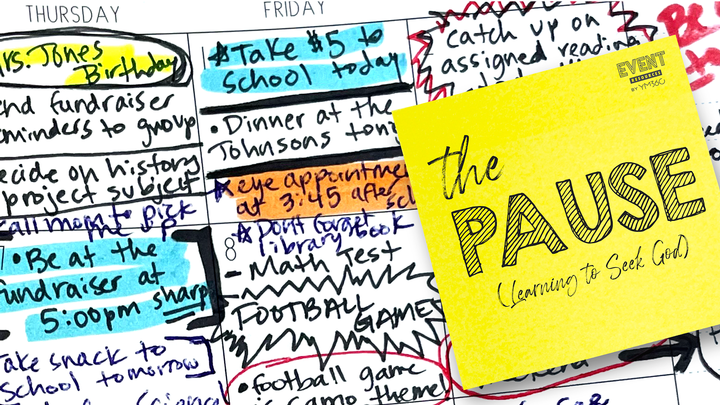 THURSDAY
FRIDAY
Mrs. Jones
Birthday
fundraiser
to group
decide on history
project subject
call mom to pick
me up
• Be at the
fundraiser at
5:00pm sharp
Take snack to
school tomorrow
*Take $5 to
school today
• Dinner at the
Johnsons
*eye
at 3:45 after
8
*Don't forget
library book
- Math Test
FOOTBALL
GAME
• football game
is camo theme!
catch up on
assigned reading
EVENT
RESOURCES
BY YM360
the
PAUSE
(Learning to Seek God)